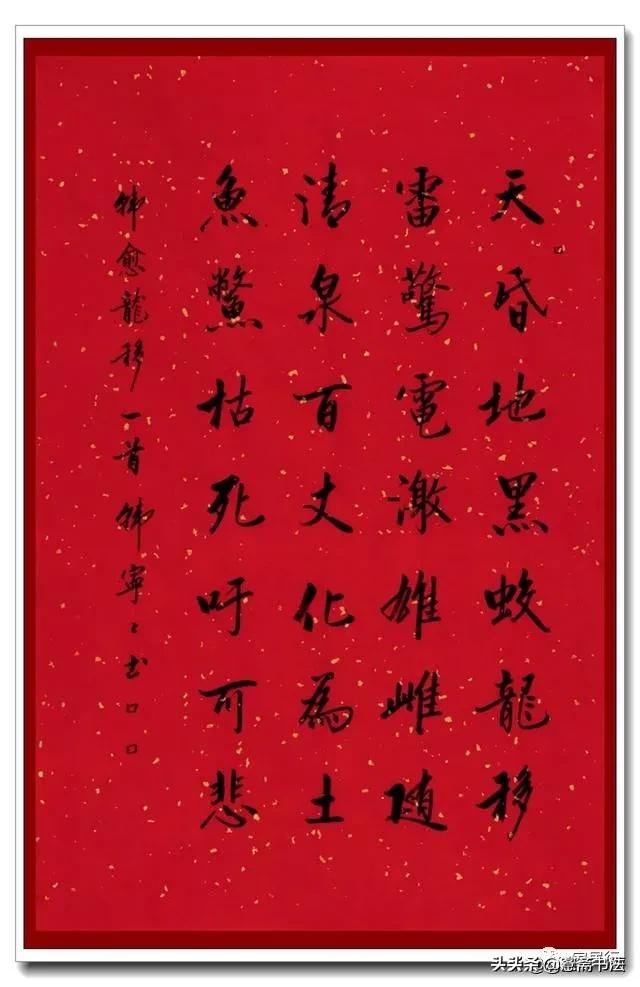 天昏地黑蛟龍移
雷驚電激雄雌随
清泉百丈化為土
魚鱉枯死吁可悲
韓愈龍移一首韓寧々书
头条@慧斋书法